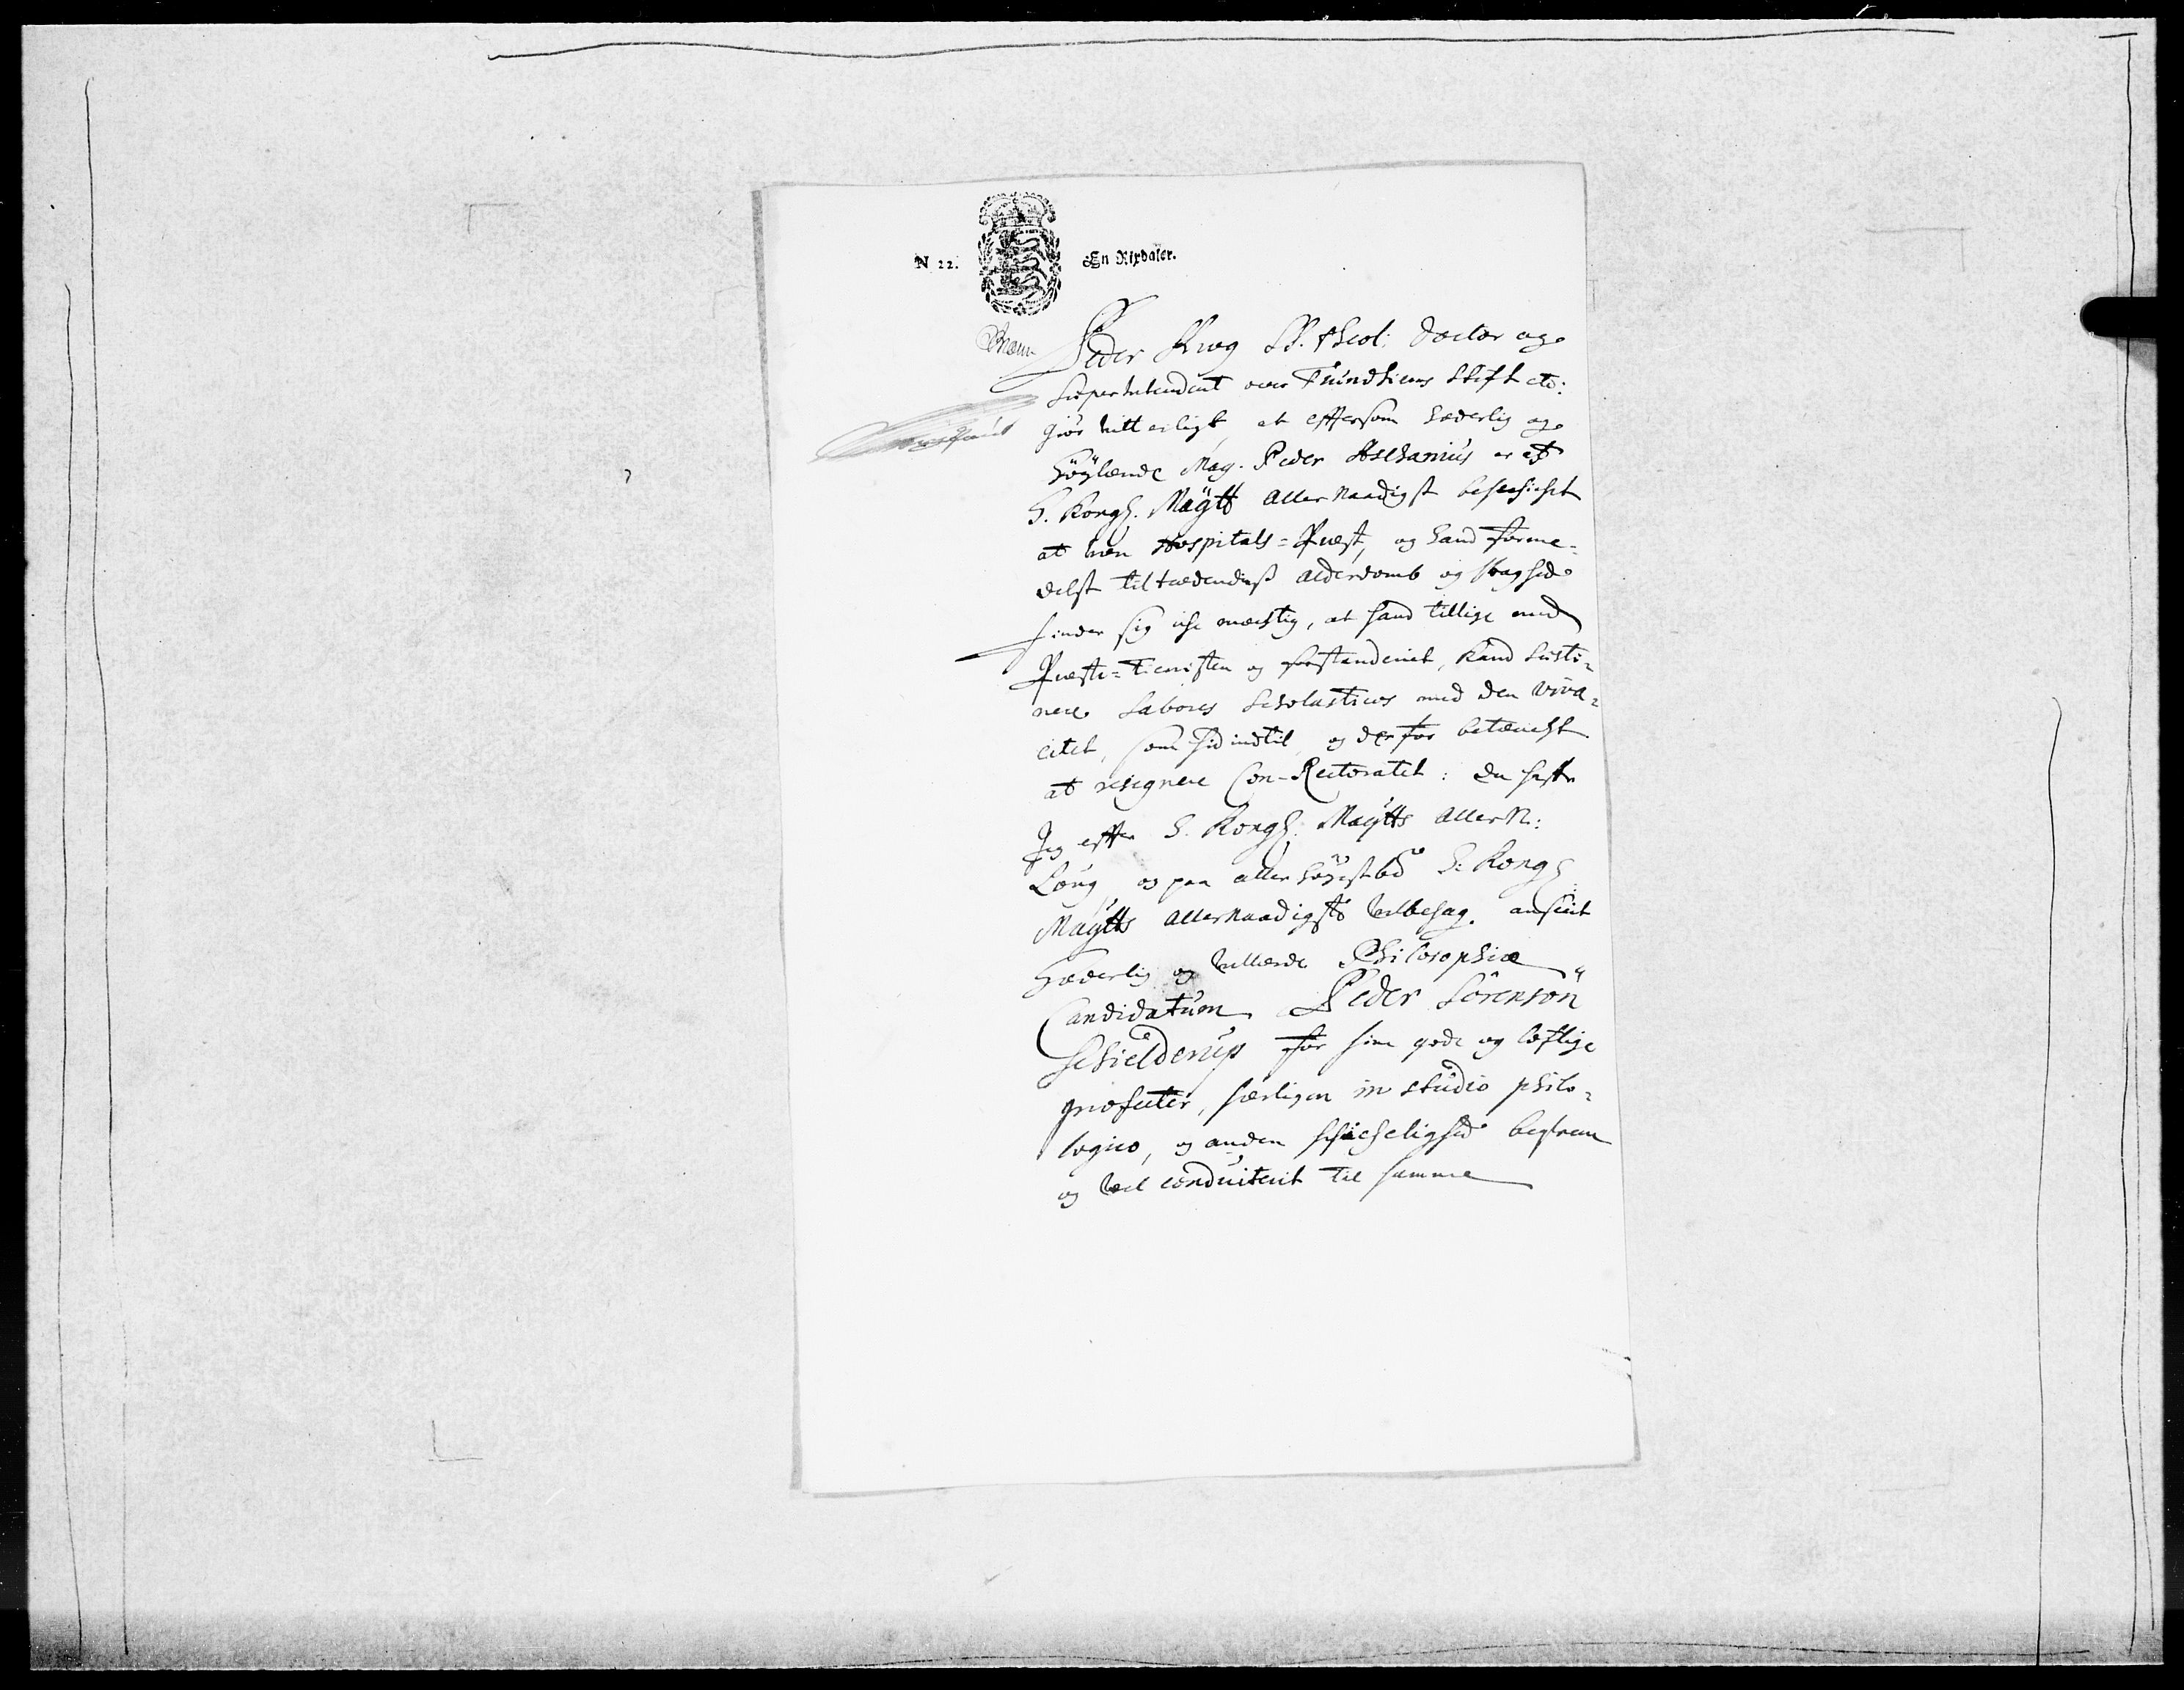 N 22. En Rixdaler.
Peder Krog SS. theol: doctor og
Superintendent over Trundhiems Stift etc:
Giör vitterligt, at eftersom hæderlig og
höÿlærde Mag. Peder Aschanius er af
H. Kongl. Maÿtt allernaadigst beschichet
at være Hospitals=Præst, og hand forme=
delst tiltrædendes alderdomb og svaghed
finder sig iche mæchtig, at hand tillige med
Præste=Tienisten og forstanderiet, kand susti=
nere labores scholasticos med den viva=
citet, som hid indtil, og derfor betænckt
at resignere Con-Rectoratet: da hafr
Jeg efter H. Kongl: Maÿtts allern:
Loug og paa allerhöÿestbd H: Kongl
Maÿtts allernaadigste velbehag. anseet
hæderlig og vellærde Philosophiæ
Candidatum Peder Sörensön
Schielderup for sine gode og loflige
profecter, særligen in studio philo=
logico, og anden schichelighed beqvem
og vel conduiteret til samme